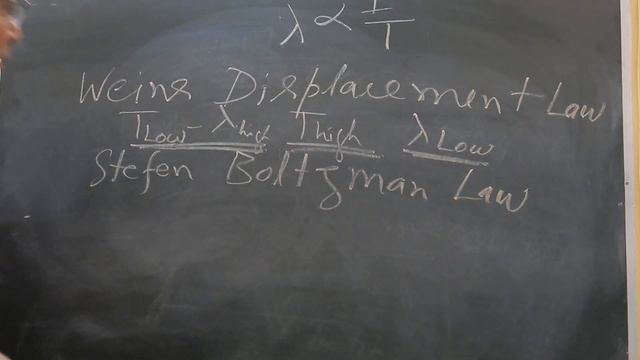 λ ∝ 1/T
Weins Displacement Law
TLow - λhigh Thigh λLow
Stefen Boltzman Law